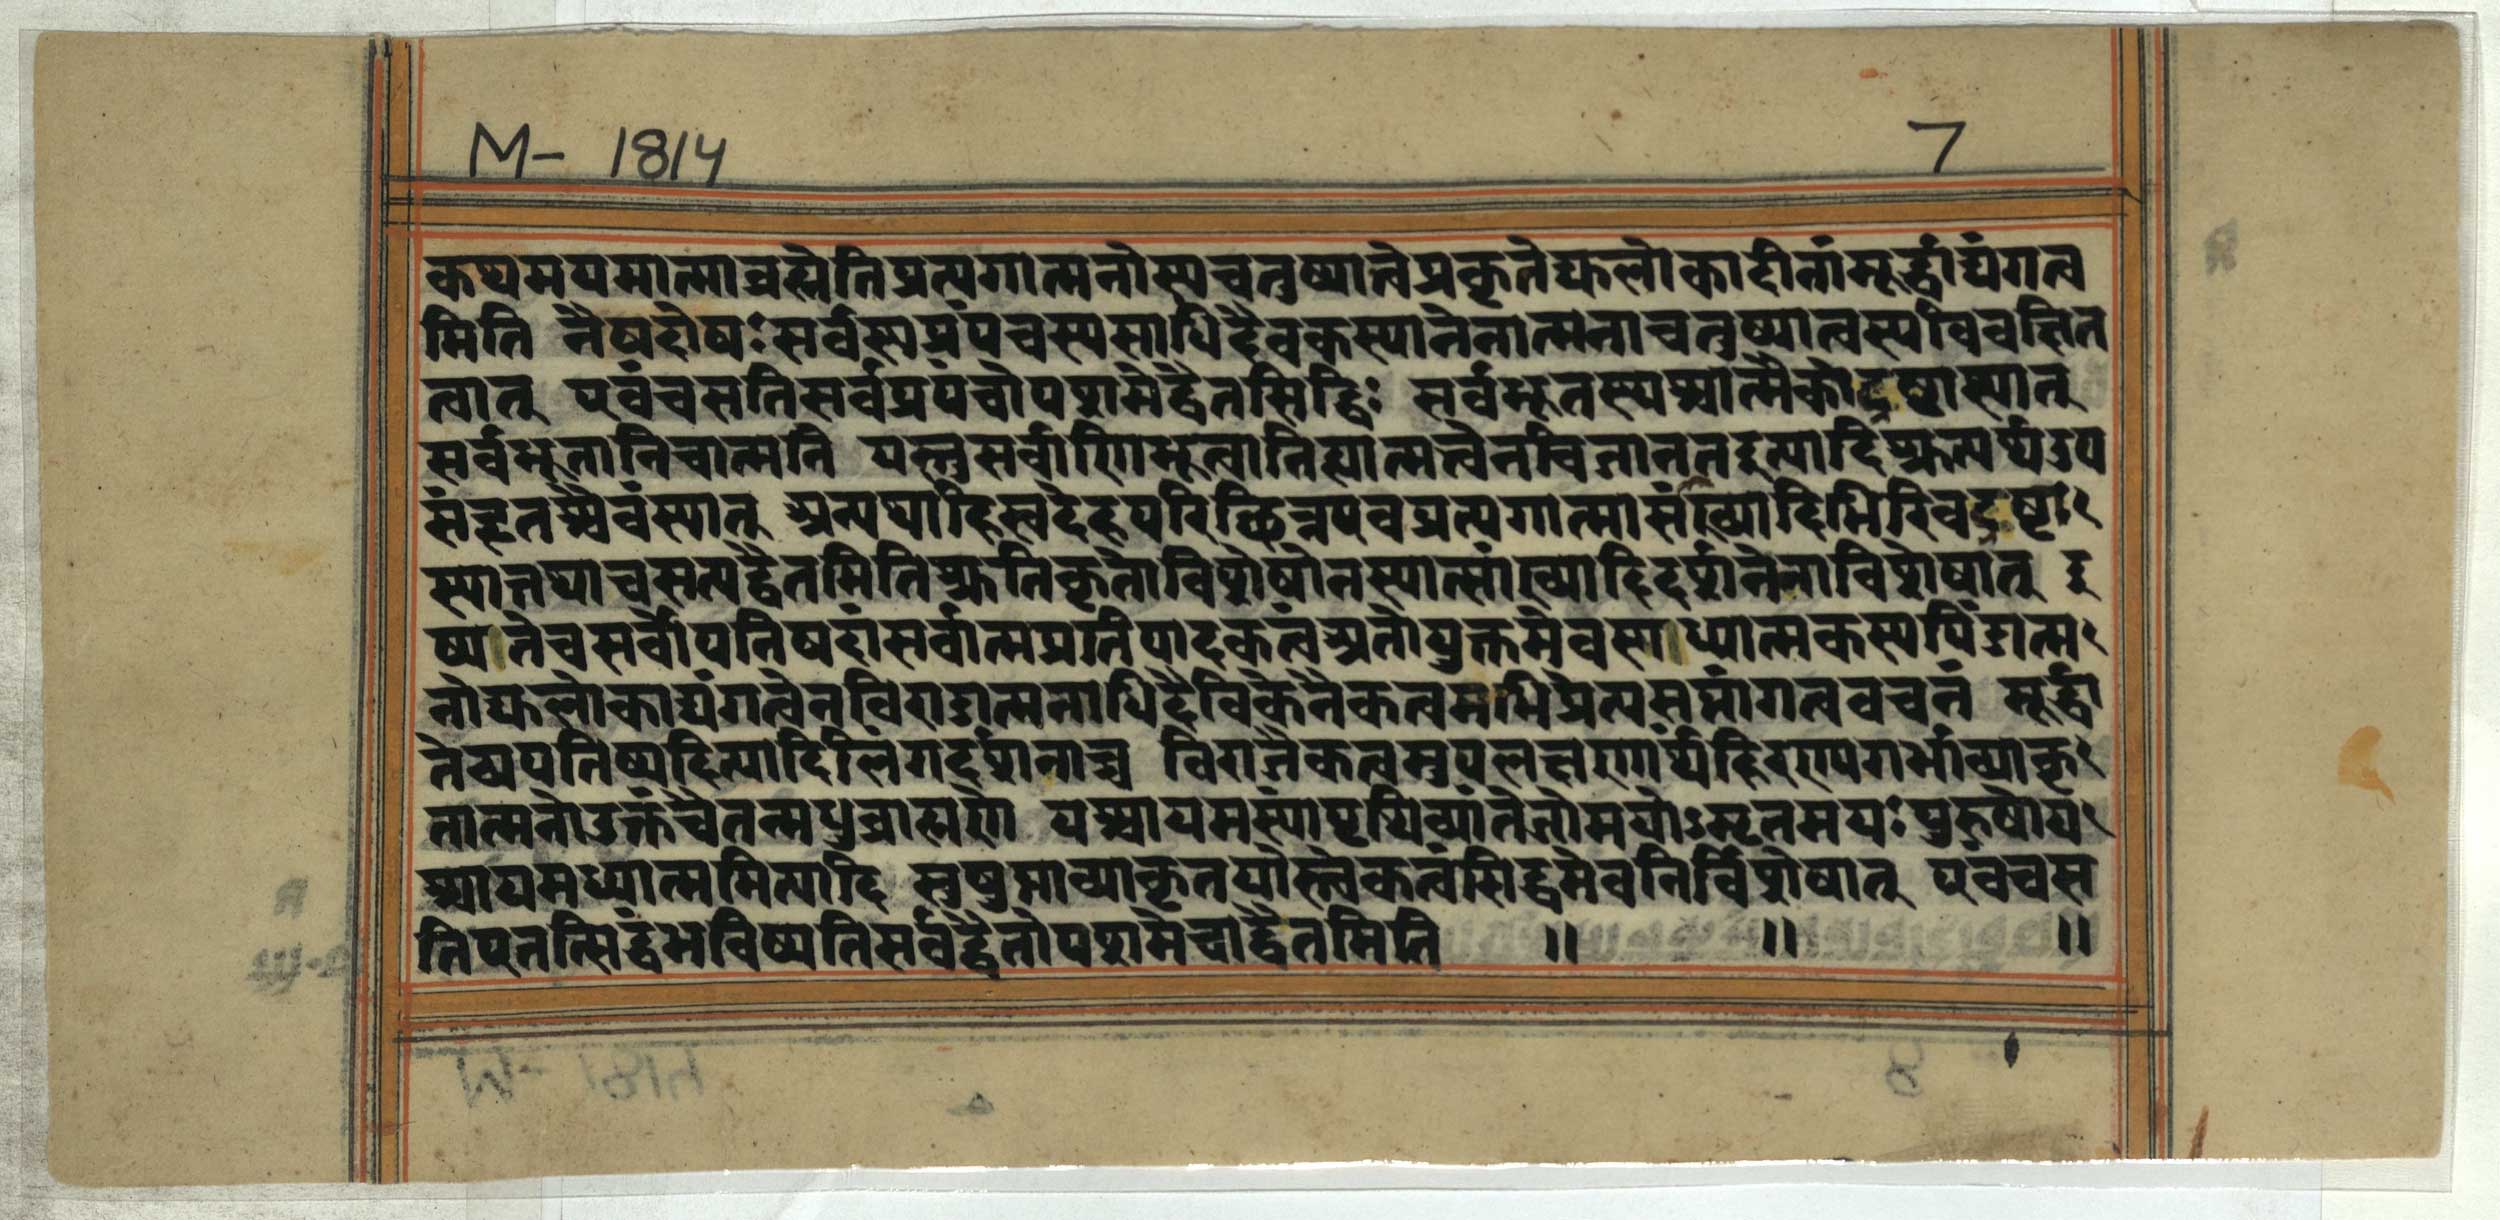 M- 1814 7
कथमयमात्माब्रह्मेतिप्रत्यगात्मनोस्यचतुष्पात्त्वेप्रकृतेद्युलोकादीनांमूर्द्धाद्यंगत्व
मिति नैषदोषःसर्वस्यप्रंपचस्यसाधिदैवकस्यानेनात्मनाचतुष्पात्वस्यविवक्षित
त्वात् एवंचसतिसर्वप्रपंचोपशमेद्वैतसिद्धिः सर्वभूतस्यश्चात्मैकोदृष्टास्यात्
सर्वभूतानिचात्मनि यस्तुसर्वाणिभूत्वानित्यात्मत्वेनविजानतदुत्यादिश्रुत्यर्थउप
संहृतश्चैवंस्यात् अन्यथाहिस्वदेहपरिछिन्नएवप्रत्यगात्मासांख्यादिभिरिवदृष्टः
स्यात्तथाचसत्यद्वैतमितिश्रुतिकृतोविशेषोनस्यात्सांख्यादिदर्शनेनाविशेषात् इ
ष्यतेचसर्वोपनिषदांसर्वात्मप्रतिपादकत्वंअतोयुक्तमेवसाध्यात्मकस्यपिंडात्म
नोद्युलोकाद्यंगत्वेनविराडात्मनाधिदैविकेनैकत्वमभिप्रेत्यसप्तांगत्ववचनं मूर्द्धा
तेव्यपतिष्यदित्यादिलिंगदर्शनाच्च विराजैकत्वमुपलक्षणार्थंहिरण्यगर्भाव्याकृ
तात्मनोउक्तंचैतन्मधुब्राह्मणे यश्चायमस्यांपृथिव्यांतेजोमयोऽमृतमयःपुरुषोय
श्चायमध्यात्ममित्यादि सुषुप्ताव्याकृतयोस्त्वेकत्वंसिद्धमेवनिर्विशेषात् एवंचस
तिएतत्सिद्धंभविष्यतिसर्वद्वैतोपशमेचाद्वैतमिति ॥ ॥ ॥